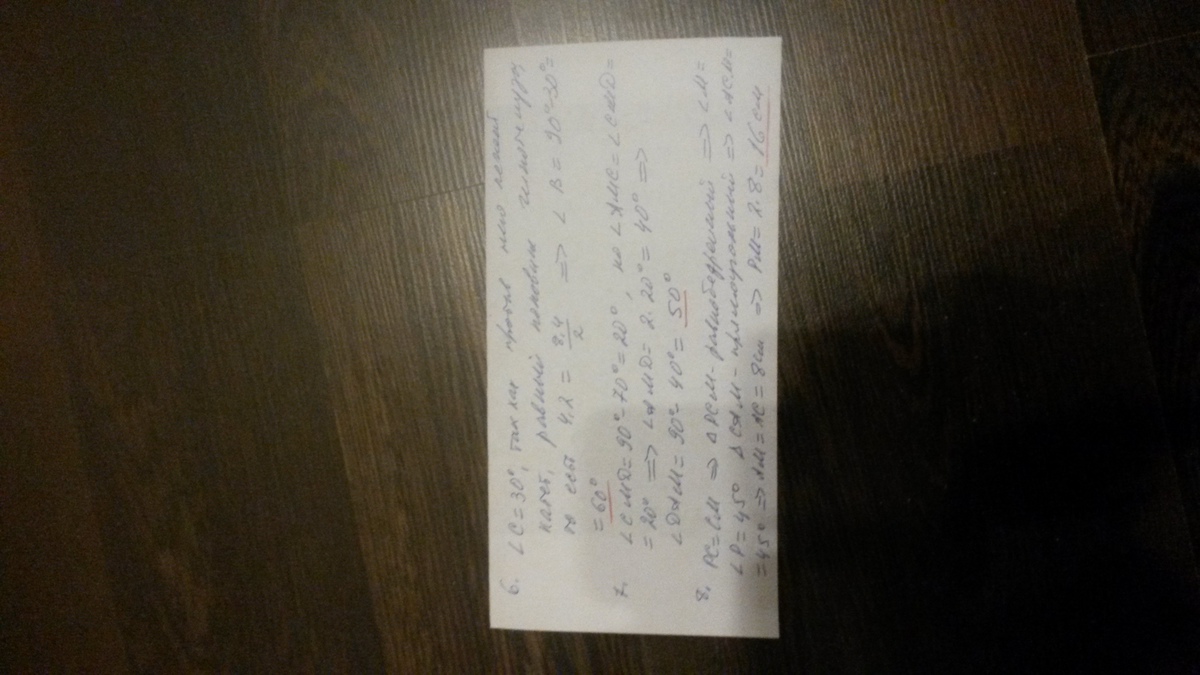 6. ∠C=30°, так как против него лежит
катет, равный половине гипотенузы,
то есть 4,2 = 8,4/2 => ∠B = 90°-30°=
= 60°
7. ∠CMD=90°-70°=20°, но ∠AMC=∠CMD=
= 20° => ∠AMD= 2·20°= 40° =>
∠DAM= 90°- 40°= 50°
8. PC=CM => ΔPCM-равнобедренный => ∠M=
∠P=45° ΔCAM-прямоугольный => ∠ACM=
=45° => AM=AC=8см => PM= 2·8=16см